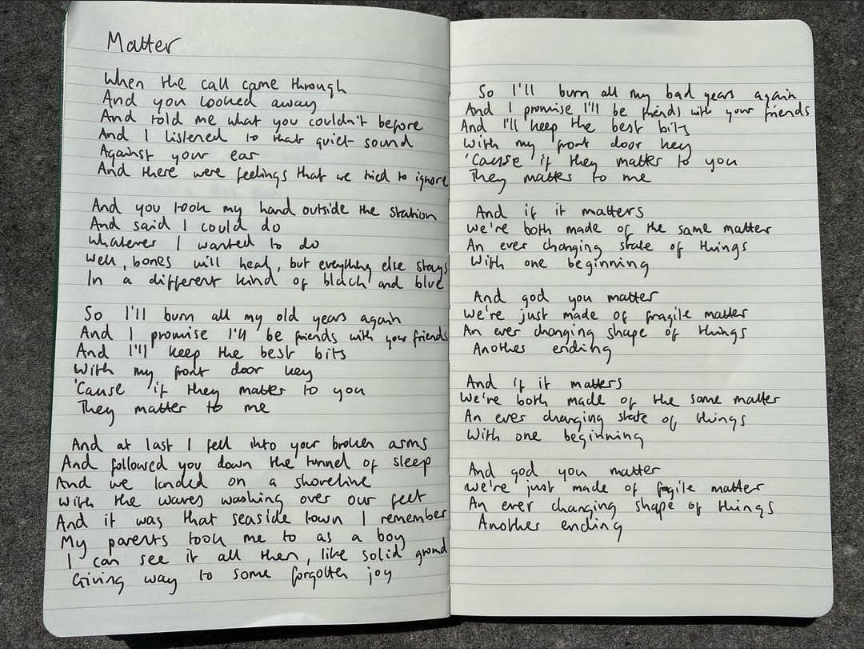 Matter
When the call came through
And you looked away
And told me what you couldn't before
And I listened to that quiet sound
Against your ear
And there were feelings that we tried to ignore
And you took my hand outside the station
And said I could do
Whatever I wanted to do
Well, bones will heal, but everything else stays
In a different kind of black and blue
So I'll burn all my old years again
And I promise I'll be friends with your friends
And I'll keep the best bits
With my front door key
'Cause if they matter to you
They matter to me
And at last I fell into your broken arms
And followed you down the tunnel of sleep
And we landed on a shoreline
With the waves washing over our feet
And it was that seaside town I remember
My parents took me to as a boy
I can see it all then, like solid ground
Giving way to some forgotten joy
So I'll burn all my bad years again
And I promise I'll be friends with your friends
And I'll keep the best bits
With my front door key
'Cause if they matter to you
They matter to me
And if it matters
We're both made of the same matter
An ever changing state of things
With one beginning
And god you matter
We're just made of fragile matter
An ever changing shape of things
Another ending
And if it matters
We're both made of the same matter
An ever changing state of things
With one beginning
And god you matter
We're just made of fragile matter
An ever changing shape of things
Another ending